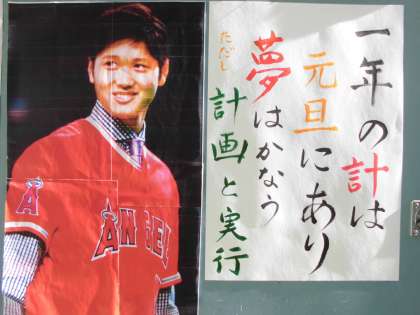 一年の計は
元旦にあり
夢はかなう
ただし
計画と実行
ANGELS